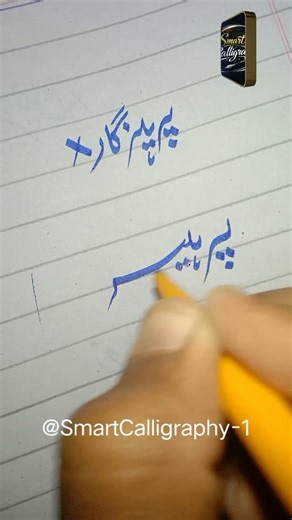 Smart
Calligra
پرہیزگار ×
پرہیر
@SmartCalligraphy-1